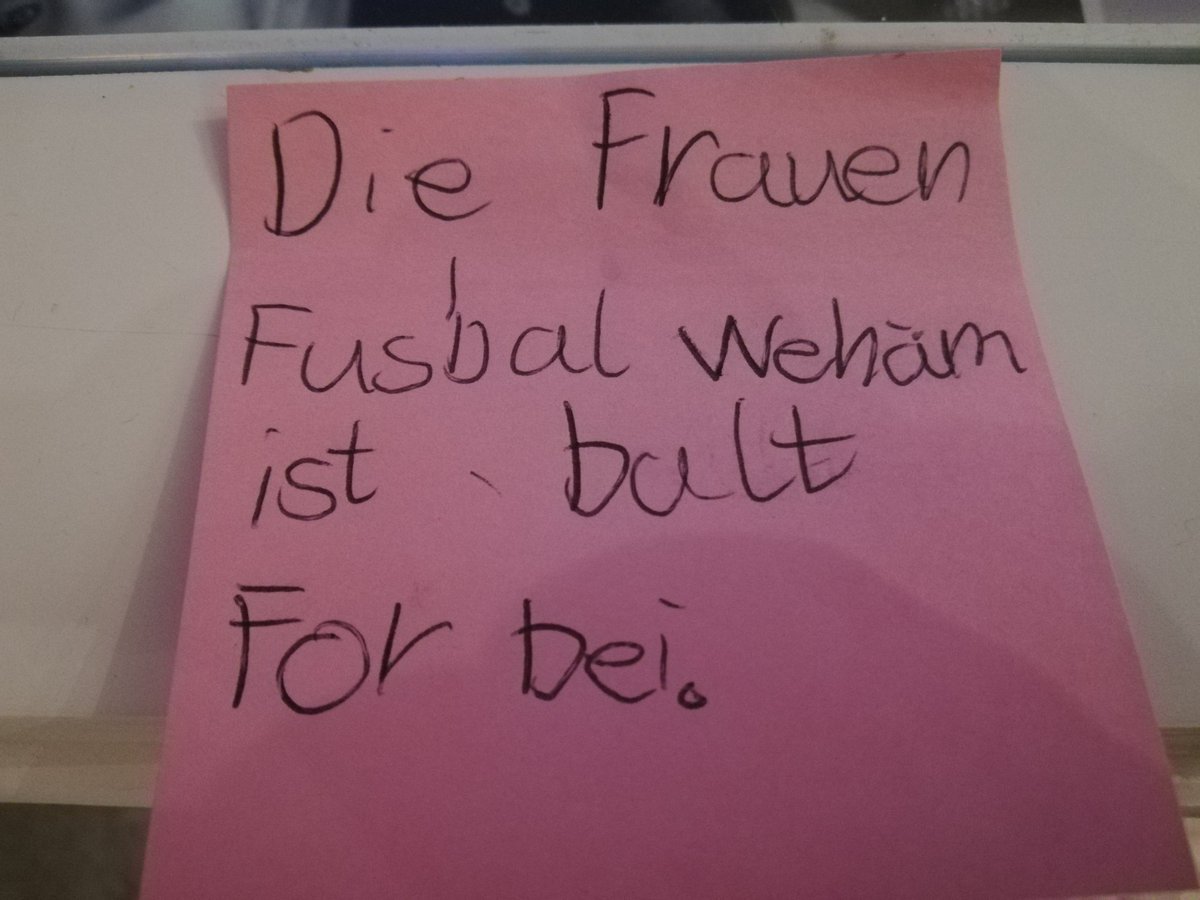 Die Frauen
Fusbal Wehäm
ist balt
For bei.